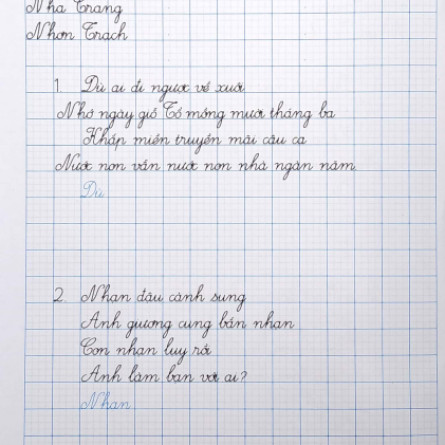 Nha Trang
Nhơn Trạch
1. Dù ai đi ngược về xuôi
Nhớ ngày giỗ Tổ mồng mười tháng ba
Khắp miền truyền mãi câu ca
Nước non vẫn nước non nhà ngàn năm.
Dù
2. Nhạn đậu cành sung
Anh giương cung bắn nhạn
Con nhạn luỵ rồi
Anh làm bạn với ai?
Nhạn